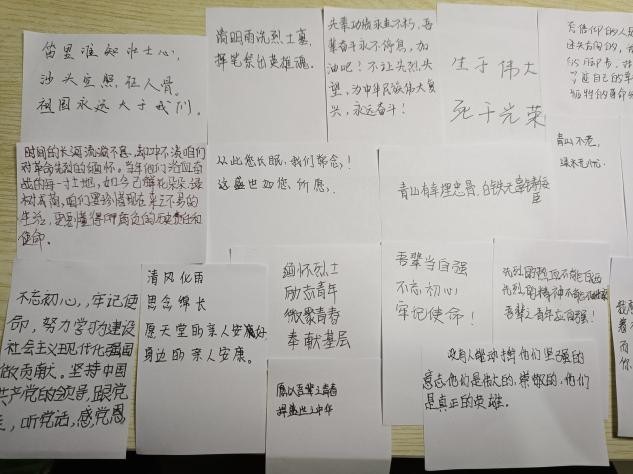 笛里谁知壮士心,
沙头空照征人骨。
祖国永远大于我们。
清明雨洗烈士墓,
挥笔祭出英雄魂。
先辈功绩永垂不朽,吾
辈奋斗永不停息,加
油吧!不让先烈失
望,为中华民族伟大复
兴,永远奋斗!
生于伟大
死于光荣
青山不老,
绿水无忧。
时间的长河流淌不息,却冲不淡咱们
对革命先烈的缅怀。当年他们浴血奋
战的每一寸土地,如今已鲜花朵朵,绿
树成荫,咱们要珍惜现在来之不易的
生活,更要懂得咱肩负的历史责任和
使命。
从此您长眠,我们常念,!
这盛世如您所愿,
青山有幸埋忠骨,白铁无辜铸佞
臣
不忘初心,牢记使
命,努力学习为建设
社会主义现代化强国
做贡献。坚持中国
共产党的领导,跟党
走,听党话,感党恩
清风化雨
思念绵长
愿天堂的亲人安好
身边的亲人安康。
缅怀烈士
励志青年
微聚青春
奉献基层
吾辈当自强
不忘初心
牢记使命!
先烈的热血不能白洒
先烈的精神不能
吾辈之青年应自强!
愿以吾辈之青春
捍盛世之中华
没有人能动摇他们坚强的
意志他们是伟大的,崇敬的,他们
是真正的英雄。